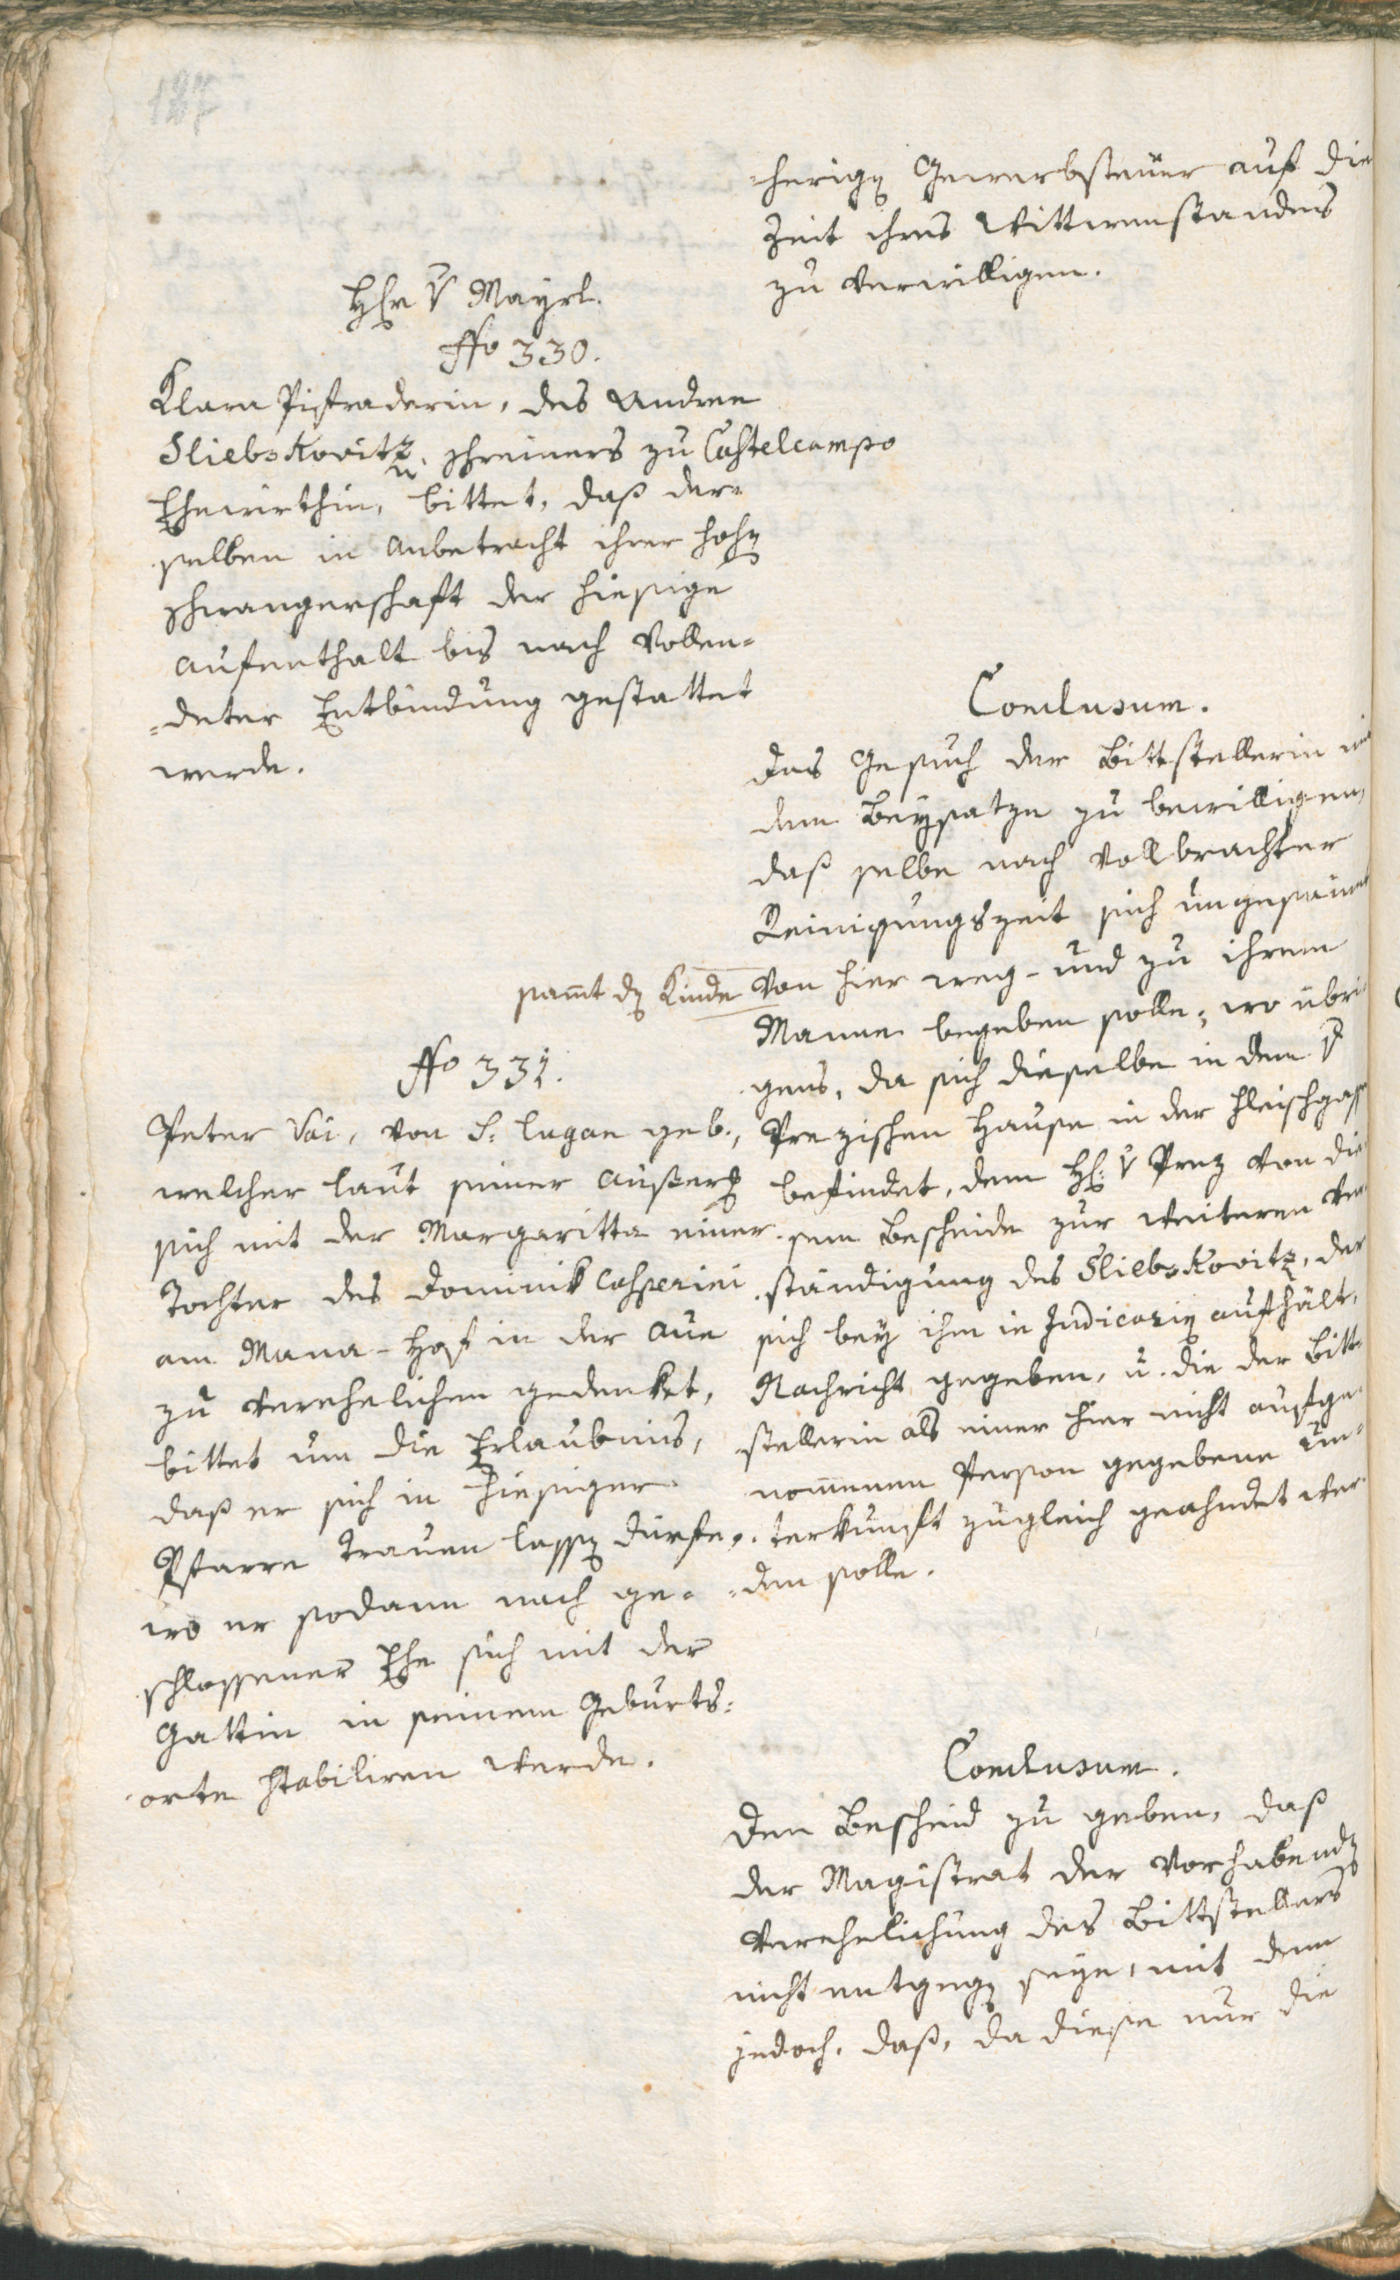 187
-herigen Gewerbsteuer auf die
Zeit ihres Wittwenstandes
zu verwilligen.
Hr. v Mayrl.
No 330.
Klara Pichtraderin, des Andree
Sliebskovitz, Schreiners zu Castelcampo
Ehewirthin, bittet, daß der-
selben in Anbetracht ihrer hohen
Schwangerschaft der hiesige
Aufenthalt bis nach vollen-
-deter Entbindung gestattet
werde.
Conclusum.
Das Gesuch der Bittstellerin mit
dem Beysatze zu bewilligen,
daß selbe nach vollbrachter
Reinigungszeit sich ungesäumt
sammt dem Kinde von hier weg- und zu ihrem
Manne begeben solle; wo übri-
gens, da sich dieselbe in dem v
Prezischen Hause in der Fleischgasse
befindet, dem H: v Prez von die-
sem Bescheide zur weiteren Ver-
ständigung des Sliebskovitz, der
sich bey ihm in Judicarien aufhält,
Nachricht gegeben, u. die der Bitt-
stellerin als einer hier nicht aufge-
nommenen Person gegebene Un-
terkunft zugleich geahndet wer-
-den solle.
No 331.
Peter Vai, von S. Lugan geb.,
welcher laut seiner Äußerung
sich mit der Margaritta einer
Tochter des Dominik Casperini
am Mana-Hof in der Aue
zu verehelichen gedenket,
bittet um die Erlaubnis,
daß er sich in hiesiger
Pfarre trauen lassen dürfe,
wo er sodann nach ge-
schlossener Ehe sich mit der
Gattin in seinem Geburts-
orte stabiliren werde.
Conclusum.
Den Bescheid zu geben, daß
der Magistrat der vorhabenden
Verehelichung des Bittstellers
nicht entgegen seye, mit dem
jedoch, daß, da diese nur die